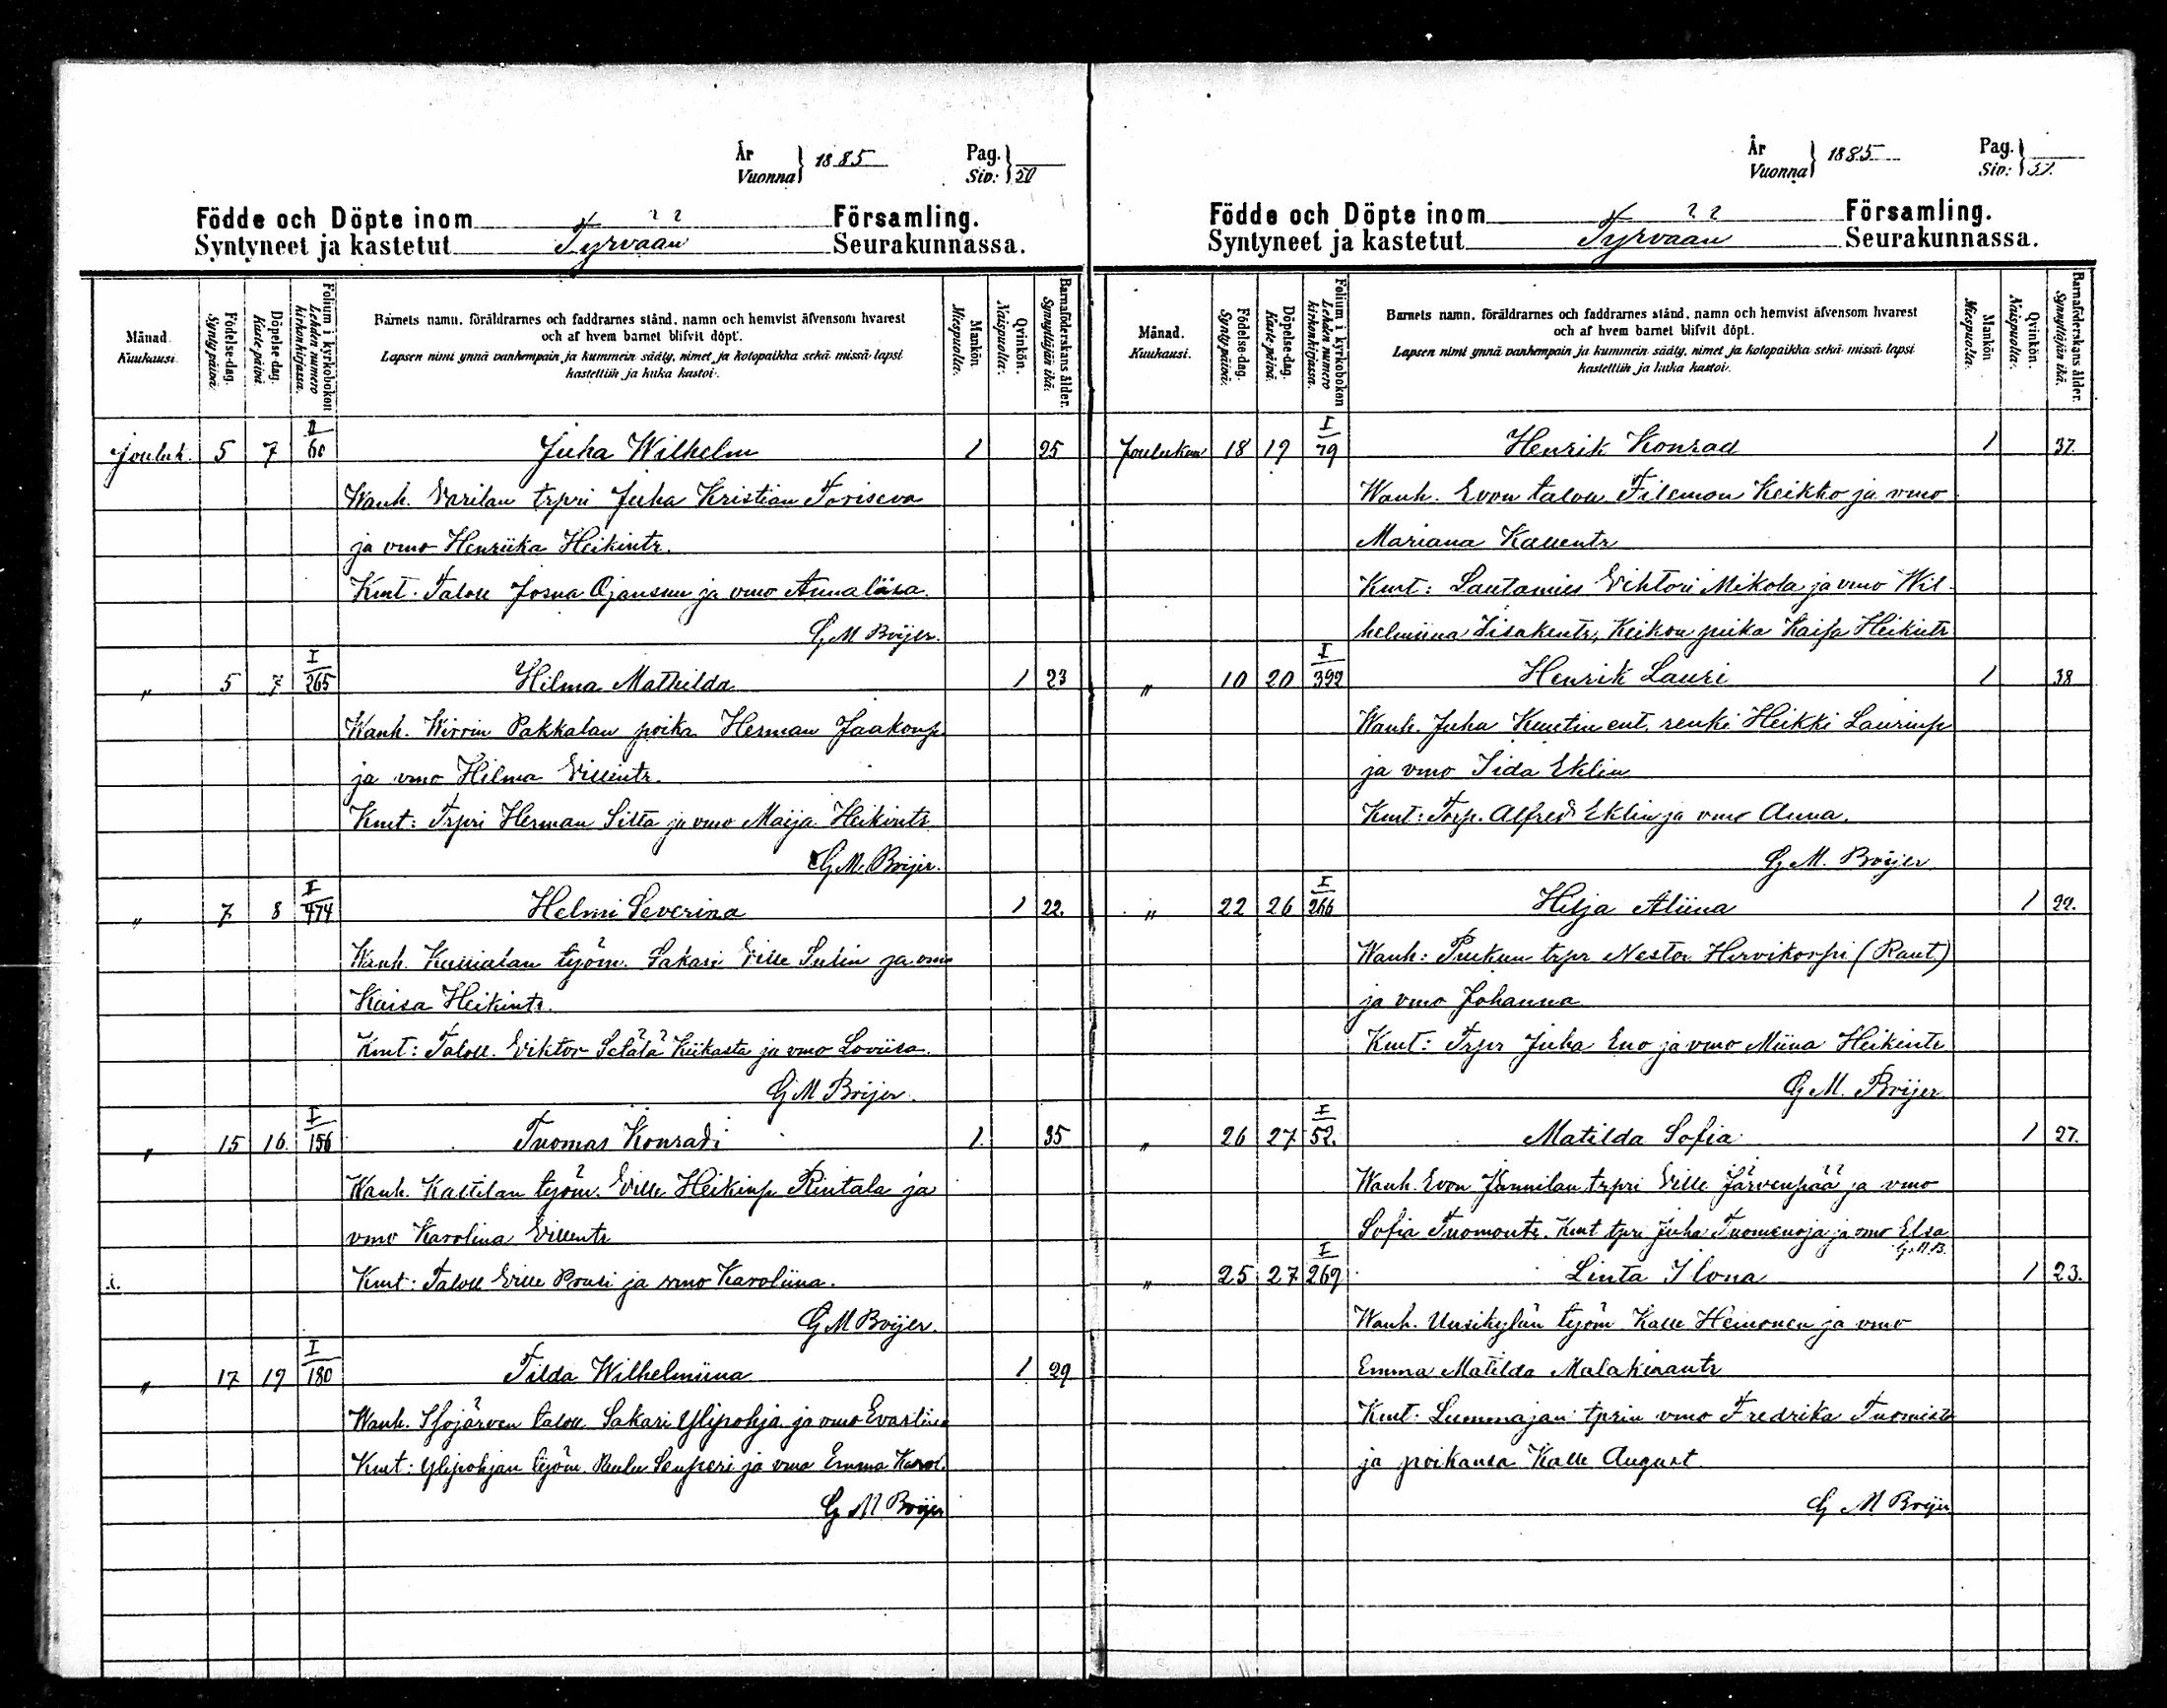 År
Vuonna } 1885
Pag.
Siv: } 50
Födde och Döpte inom Församling.
Syntyneet ja kastetut Tyrvään Seurakunnassa.
Månad. Kuukausi.
Födelse-dag. Synty päivä.
Döpelse-dag. Kaste päivä.
Folium i kyrkoboken Lehden numero kirkonkirjassa.
Barnets namn, föräldrarnes och faddrarnes stånd, namn och hemvist äfvensom hvarest
och af hvem barnet blifvit döpt.
Lapsen nimi ynnä vanhempain ja kummein sääty, nimet ja kotopaikka sekä missä lapsi
kastettiin ja kuka kastoi.
Mankön Miespuolta.
Qvinkön. Naispuolta.
Barnaföderskans ålder. Synnyttäjän ikä.
Jouluk. 5 7 II/60 Juha Wilhelm 1 25
Wanh. Varilan trpri Juha Kristian Toriseva
ja vmo Henriika Heikintr.
Kmt. Taloll Josua Ojansuu ja vmo Annaliisa.
G M Boijer.
" 5 7 I/265 Hilma Mathilda 1 23
Wanh. Pakkalan poika Herman Jaakonp.
ja vmo Hilma Villentr.
Kmt: Trpri Herman ja vmo Maija Heikintr
G M. Boijer.
" 7 8 I/474 Helmi Severina 1 22.
Wanh. työm. Sakari Ville Sulin ja vmo
Kaisa Heikintr.
Kmt: Taloll. Viktor Setälä Kiikasta ja vmo Loviisa.
G M Boijer.
" 15 16. I/156 Tuomas Konradi 1. 35
Wanh. Kaltilan työm. Ville Heikinp Rintala ja
vmo Karolina Villentr
Kmt: Taloll Ville Pousi ja vmo Karoliina.
G M Boijer.
" 17 19 I/180 Tilda Wilhelmiina 1 29
Wanh. Illojärven taloll. Sakari Ylipohja ja vmo Evastiina
Kmt: Ylipohjan työm. ja vmo Emma Karol.
G M Boijer
År
Vuonna } 1885
Pag.
Siv: } 51.
Födde och Döpte inom Församling.
Syntyneet ja kastetut Tyrvään Seurakunnassa.
Månad. Kuukausi.
Födelse-dag. Synty päivä.
Döpelse-dag. Kaste päivä.
Folium i kyrkoboken Lehden numero kirkonkirjassa.
Barnets namn, föräldrarnes och faddrarnes stånd, namn och hemvist äfvensom hvarest
och af hvem barnet blifvit döpt.
Lapsen nimi ynnä vanhempain ja kummein sääty, nimet ja kotopaikka sekä missä lapsi
kastettiin ja kuka kastoi.
Mankön Miespuolta.
Qvinkön. Naispuolta.
Barnaföderskans ålder. Synnyttäjän ikä.
Joulukuu 18 19 I/79 Henrik Konrad 1 37.
Wanh. Evon taloll Filemon Keikko ja vmo
Mariana Kallentr
Kmt: Lautamies Vihtori Mikola ja vmo Wil-
helmiina Iisakintr, Keikon Kaisa Heikintr
" 10 20 I/392 Henrik Lauri 1 38
Wanh. Juha ent. renki Heikki Laurinp
ja vmo Iida Eklin
Kmt: Torp. Alfred Eklin ja vmo Anna.
G M. Boijer
" 22 26 I/266 Hilja Aliina 1 22.
Wanh: trpr Nestor Hirvikorpi (Raut)
ja vmo Johanna
Kmt: Trpr Juha Eno ja vmo Miina Heikintr
G M. Boijer
" 26 27 I/52. Matilda Sofia 1 27.
Wanh. Evon Jannilan trpri Ville Järvenpää ja vmo
Sofia Tuomontr. Kmt tpri Juha Tuomenoja ja vmo Elsa
G. M. B.
" 25 27 I/269 Linta Ilona 1 23.
Wanh. Uusikylän työm Kalle Heinonen ja vmo
Emma Matilda Malakiantr
Kmt: Lummajan tprin vmo Fredrika Tuomistr
ja poikansa Kalle August
G M Boijer